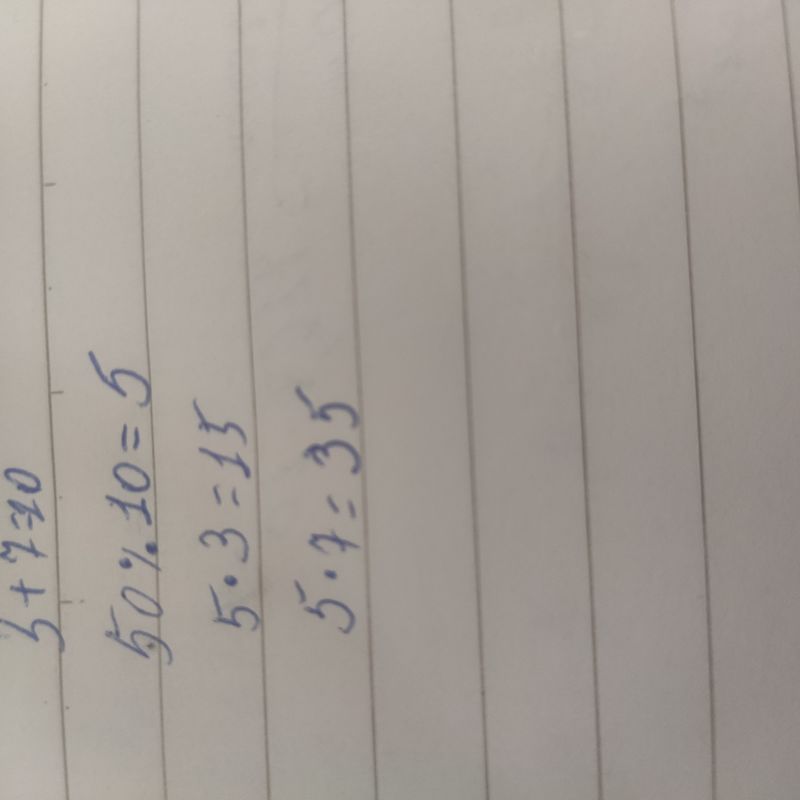 3+7=10
50%10=5
5·3=15
5·7=35